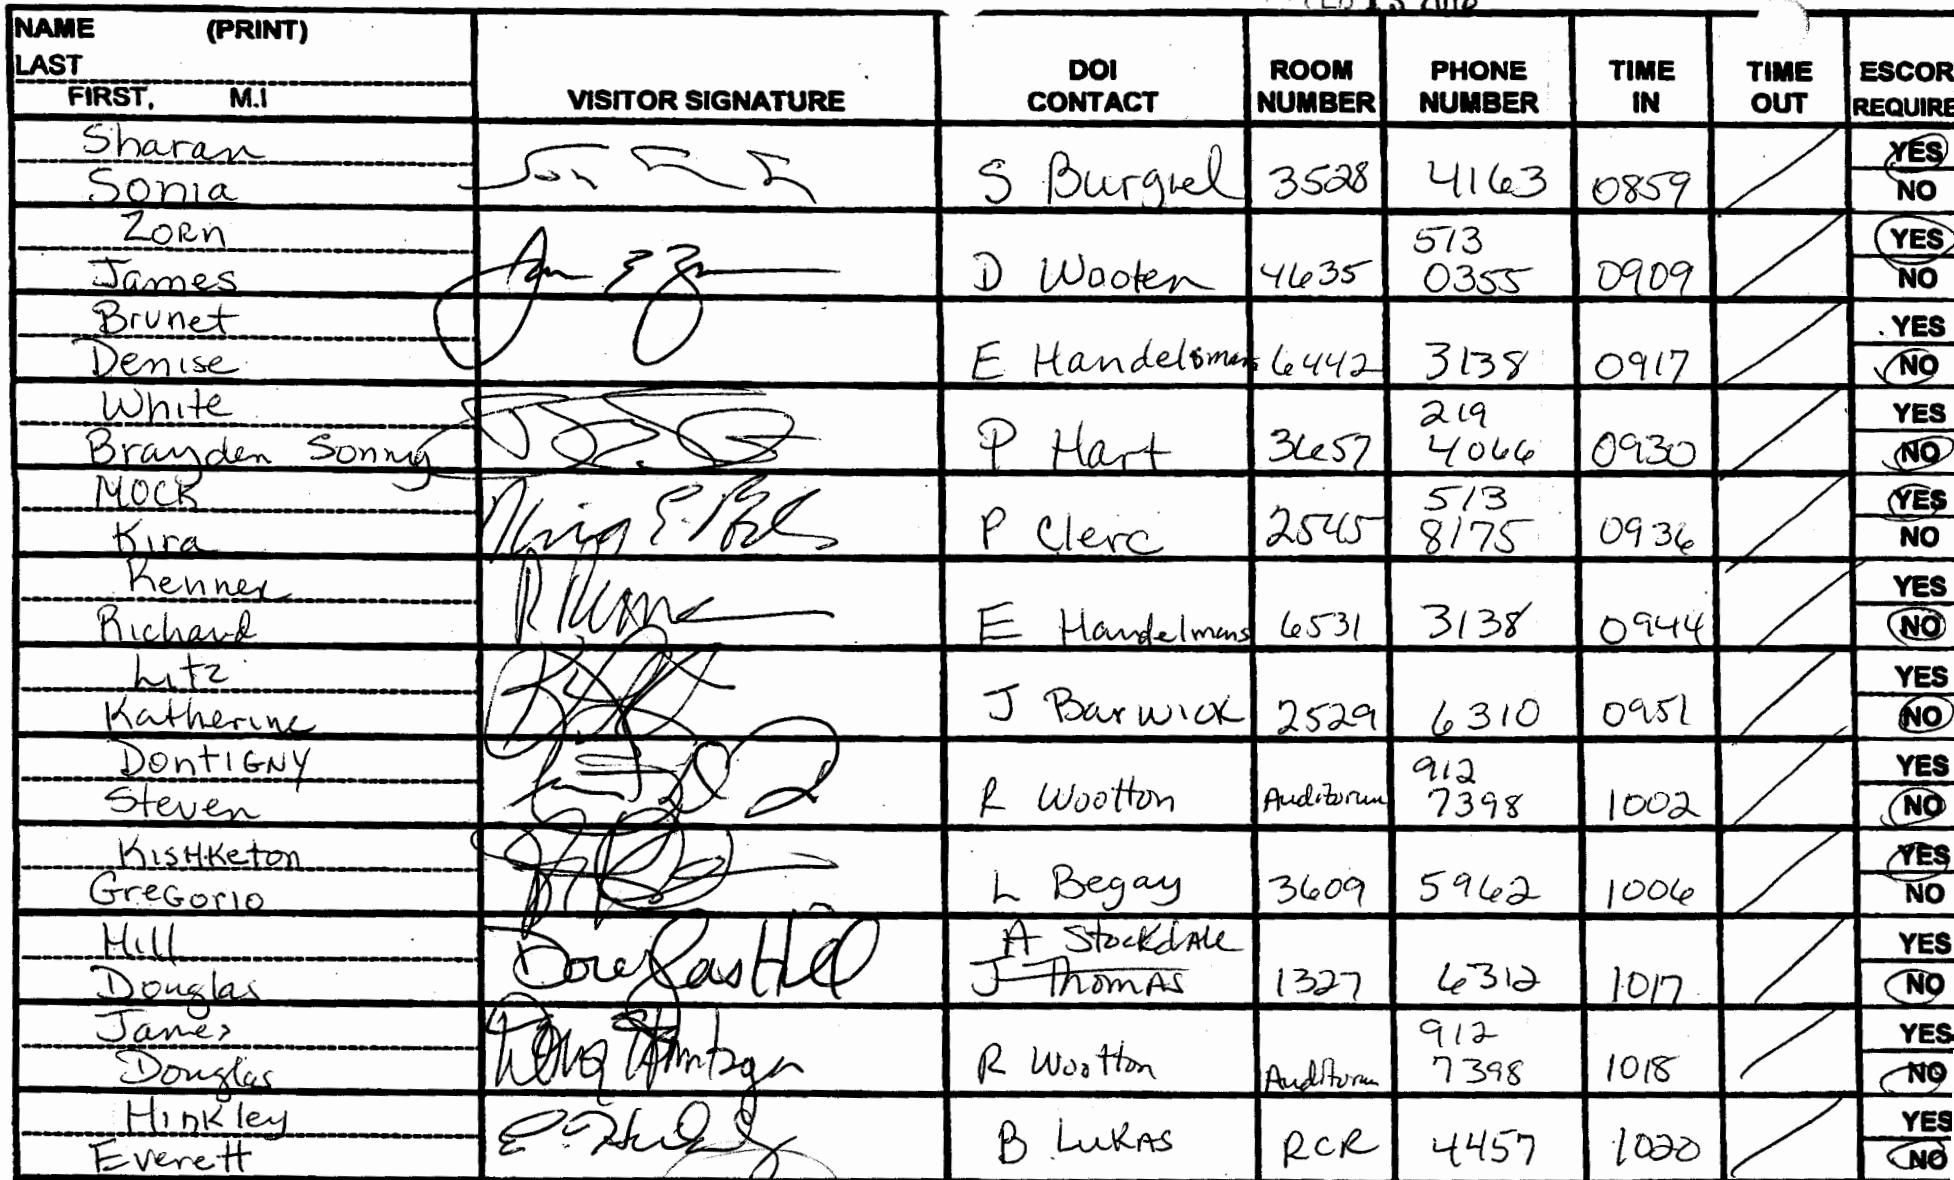 NAME (PRINT)
LAST
FIRST, M.I
VISITOR SIGNATURE
DOI CONTACT
ROOM NUMBER
PHONE NUMBER
TIME IN
TIME OUT
ESCOR REQUIRE
Sharan YES
Sonia S Burgiel 3528 4163 0859 NO
Zorn 513 YES
James D Wooten 4635 0355 0909 NO
Brunet YES
Denise E Handelsman 6442 3138 0917 NO
White 219 YES
Brayden Sonny P Hart 3657 4066 0930 NO
Mock 513 YES
Kira P Clerc 2545 8175 0936 NO
Renner YES
Richard E Handelmans 6531 3138 0944 NO
Litz YES
Katherine J Barwick 2529 6310 0951 NO
DontIGNY 912 YES
Steven R Wootton Auditorium 7398 1002 NO
KisHKeton YES
GreGorio L Begay 3609 5962 1006 NO
Hill Douglas Hill A StockdAle YES
Douglas J ThomAs 1327 6312 1017 NO
James 912 YES
Douglas R Wootton Auditorium 7398 1018 NO
Hinkley YES
Everett B LuKAS RCR 4457 1020 NO